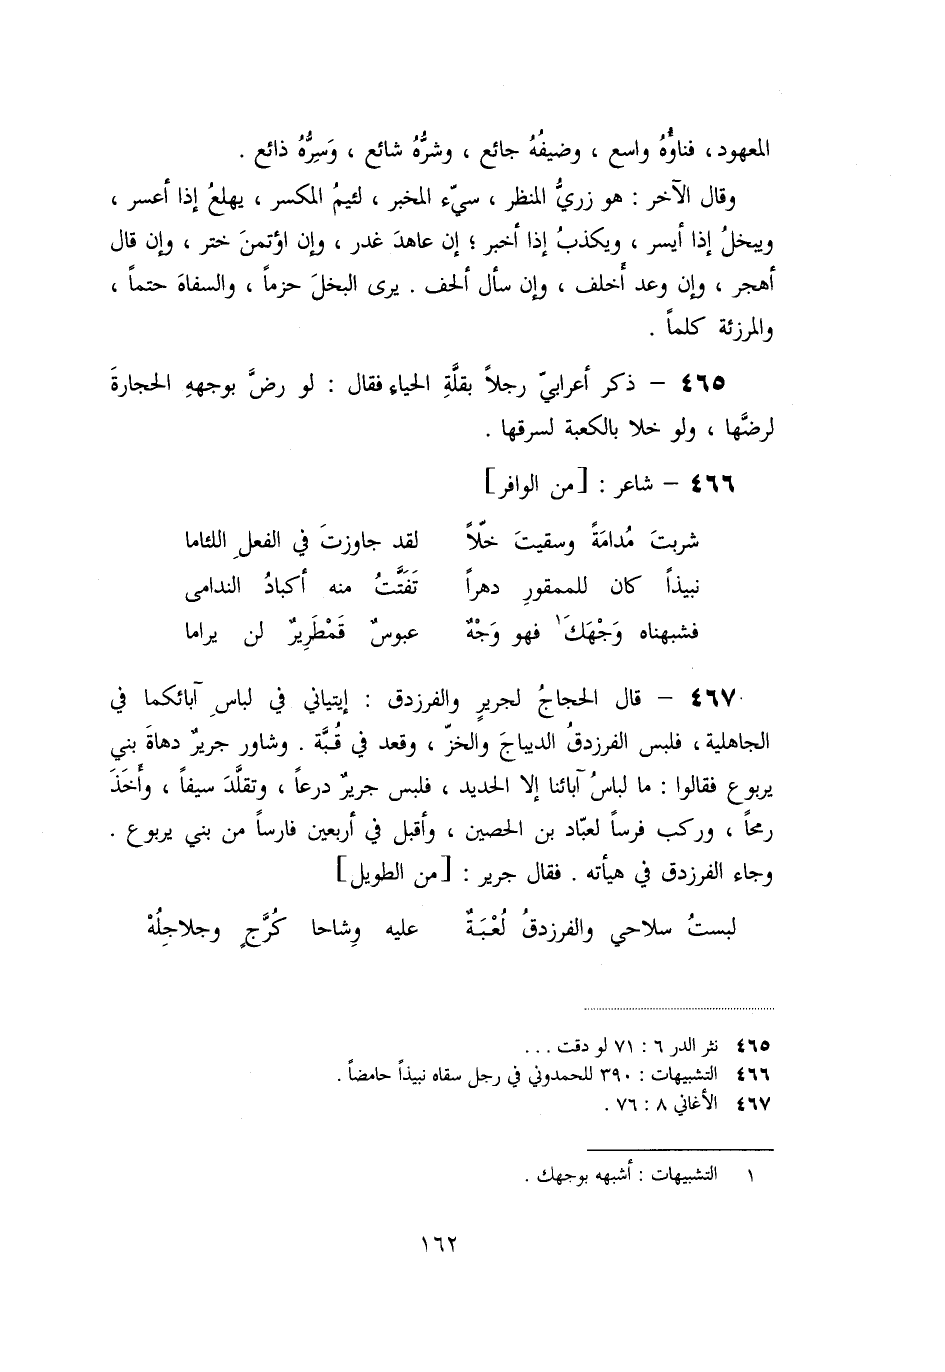 المعهود، فناؤُهُ واسع ، وضيفُهُ جائع ، وشرُّهُ شائع ، وَسِرُّهُ ذائع .
وقال الآخر : هو زريُّ المنظر ، سيّء المخبر ، لئيمُ المكسر ، يهلعُ إذا أعسر ،
ويبخلُ إذا أيسر ، ويكذبُ إذا أخبر ؛ إن عاهدَ غدر ، وإن اؤتمنَ ختر ، وإن قال
أهجر ، وإن وعد أخلف ، وإن سأل ألحف . يرى البخلَ حزماً ، والسفاهَ حتماً ،
والمرزئة كلماً .
٤٦٥ – ذكر أعرابيّ رجلاً بقلَّةِ الحياءِ فقال : لو رضَّ بوجههِ الحجارةَ
لرضَّها ، ولو خلا بالكعبة لسرقها .
٤٦٦ – شاعر : [من الوافر]
شربتَ مُدامَةً وسقيتَ خلّاً لقد جاوزتَ في الفعلِ اللئاما
نبيذاً كان للممقورِ دهراً تَفَتَّتُ منه أكبادُ الندامى
فشبهناه وَجْهَكَ١ فهو وَجْهٌ عبوسٌ قَمْطَرِيرٌ لن يراما
٤٦٧ – قال الحجاجُ لجريرٍ والفرزدق : إيتياني في لباسِ آبائكما في
الجاهلية ، فلبس الفرزدقُ الديباجَ والخزّ ، وقعد في قُبَّة . وشاور جريرٌ دهاةَ بني
يربوع فقالوا : ما لباسُ آبائنا إلا الحديد ، فلبس جريرٌ درعاً ، وتقلَّدَ سيفاً ، وأَخَذَ
رمحاً ، وركب فرساً لعبّاد بن الحصين ، وأقبل في أربعين فارساً من بني يربوع .
وجاء الفرزدق في هيأته . فقال جرير : [من الطويل]
لبستُ سلاحي والفرزدقُ لُعْبَةٌ عليه وِشاحا كُرَّجٍ وجلاجِلُهْ
٤٦٥ نثر الدر ٦ : ٧١ لو دقت ...
٤٦٦ التشبيهات : ٣٩٠ للحمدوني في رجل سقاه نبيذاً حامضاً .
٤٦٧ الأغاني ٨ : ٧٦ .
١ التشبيهات : أشبهه بوجهك .
١٦٢